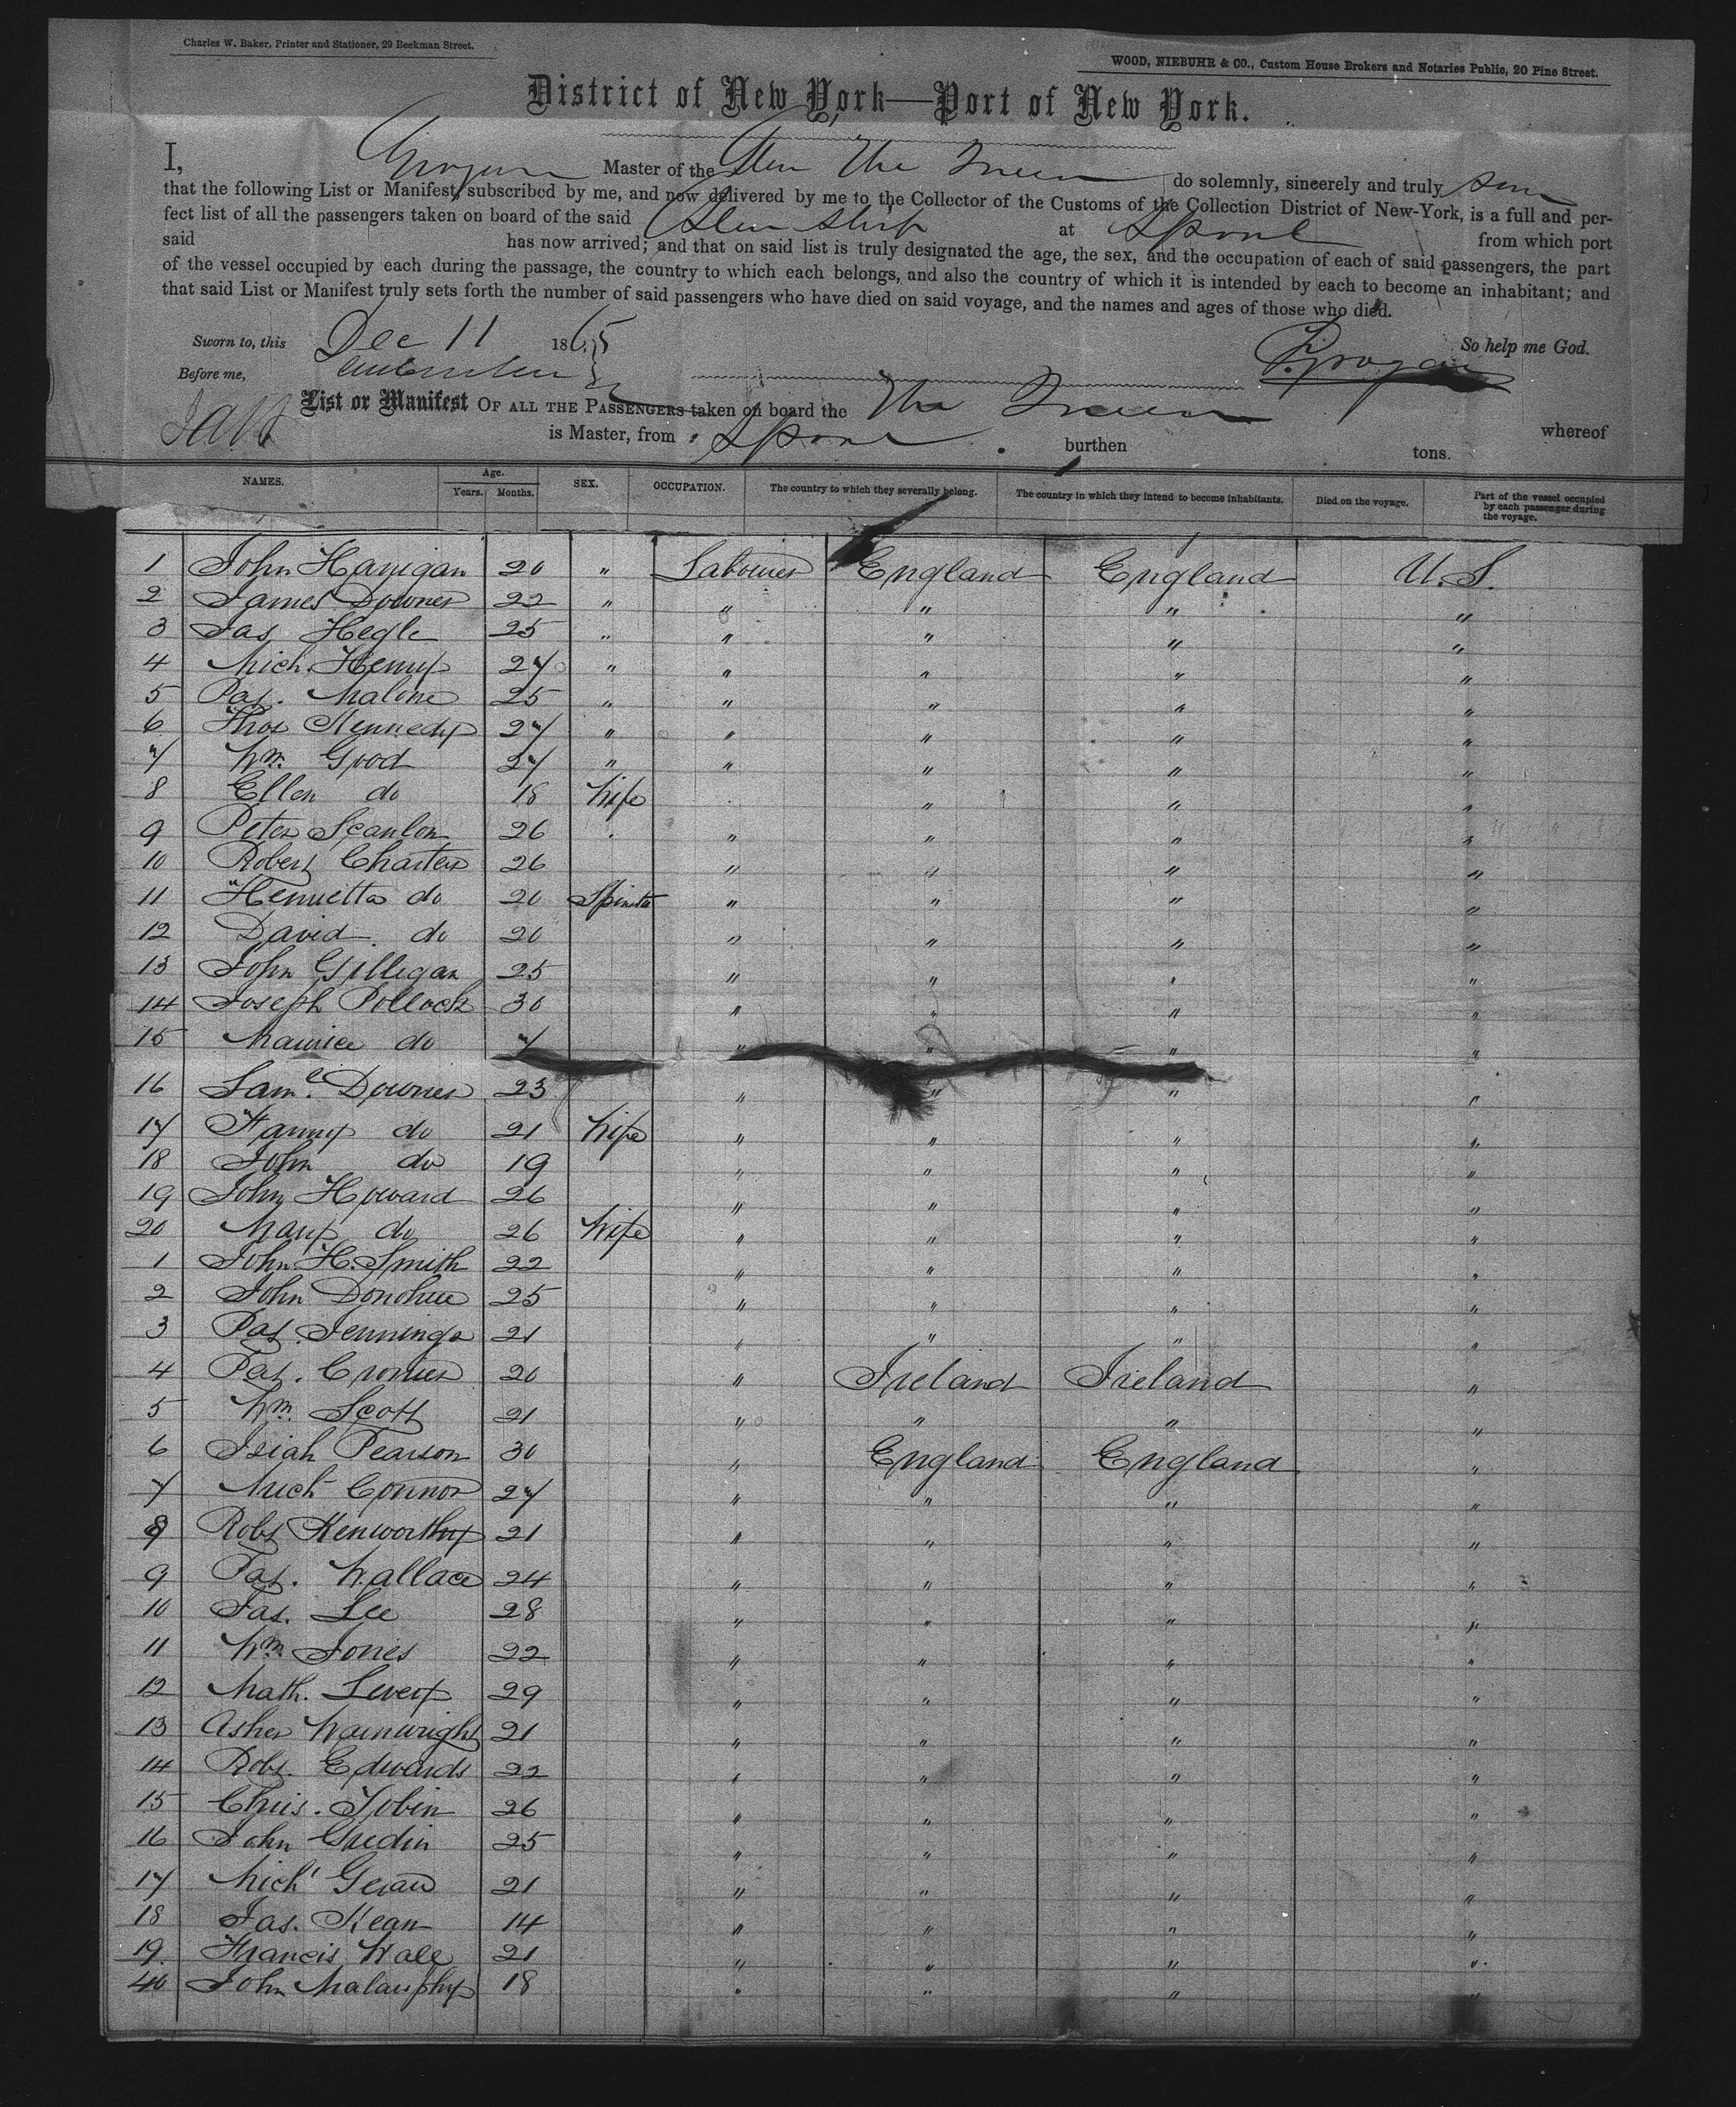 Charles W. Baker, Printer and Stationer, 29 Beekman Street.
WOOD, NIEBUHR & CO., Custom House Brokers and Notaries Public, 20 Pine Street.
District of New York—Port of New York.
I, Grogan Master of the Stm The Queen do solemnly, sincerely and truly
that the following List or Manifest, subscribed by me, and now delivered by me to the Collector of the Customs of the Collection District of New-York, is a full and per-
fect list of all the passengers taken on board of the said Steam ship at Lpool from which port
said has now arrived; and that on said list is truly designated the age, the sex, and the occupation of each of said passengers, the part
of the vessel occupied by each during the passage, the country to which each belongs, and also the country of which it is intended by each to become an inhabitant; and
that said List or Manifest truly sets forth the number of said passengers who have died on said voyage, and the names and ages of those who died.
Sworn to, this Dec 11 1865 So help me God.
Before me, Grogan
List or Manifest OF ALL THE PASSENGERS taken on board the The Queen whereof
is Master, from Lpool burthen tons.
NAMES. Age. Years. Months. SEX. OCCUPATION. The country to which they severally belong. The country in which they intend to become inhabitants. Died on the voyage. Part of the vessel occupied by each passenger during the voyage.
1 John Hanigan 20 " Labourer England England U.S.
2 James Downes 22 " " " " "
3 Jas Hegle 25 " " " " "
4 Mich. Henry 27 " " " " "
5 Pat. Malone 25 " " " " "
6 Thos Kennedy 27 " " " " "
7 Wm. Good 27 " " " " "
8 Ellen do 18 Wife " " "
9 Peter Scanlon 26 " " " "
10 Robert Charters 26 " " " "
11 Henrietta do 20 Spinster " " " "
12 David do 20 " " " "
13 John Gilligan 25 " " " "
14 Joseph Pollock 30 " " " "
15 Maurice do 7 " " " "
16 Saml. Downes 23 " " " "
17 Fanny do 21 Wife " " " "
18 John do 19 " " " "
19 John Howard 26 " " " "
20 Mary do 26 Wife " " " "
1 John H. Smith 22 " " " "
2 John Donohue 25 " " " "
3 Pat. Jennings 21 " " " "
4 Pat. 20 " Ireland Ireland "
5 Wm. Scott 21 " " " "
6 Isiah Pearson 30 " England England "
7 Mich Connor 27 " " " "
8 Robt Kenworthy 21 " " " "
9 Pat. Wallace 24 " " " "
10 Jas. Lee 28 " " " "
11 Wm Jones 22 " " " "
12 Math. Levery 29 " " " "
13 Asher Wainwright 21 " " " "
14 Robt. Edwards 22 " " " "
15 Chris. Tobin 26 " " " "
16 John 25 " " " "
17 Mich' 21 " " " "
18 Jas. Kean 14 " " " "
19 Francis Wall 21 " " " "
40 John 18 " " " "